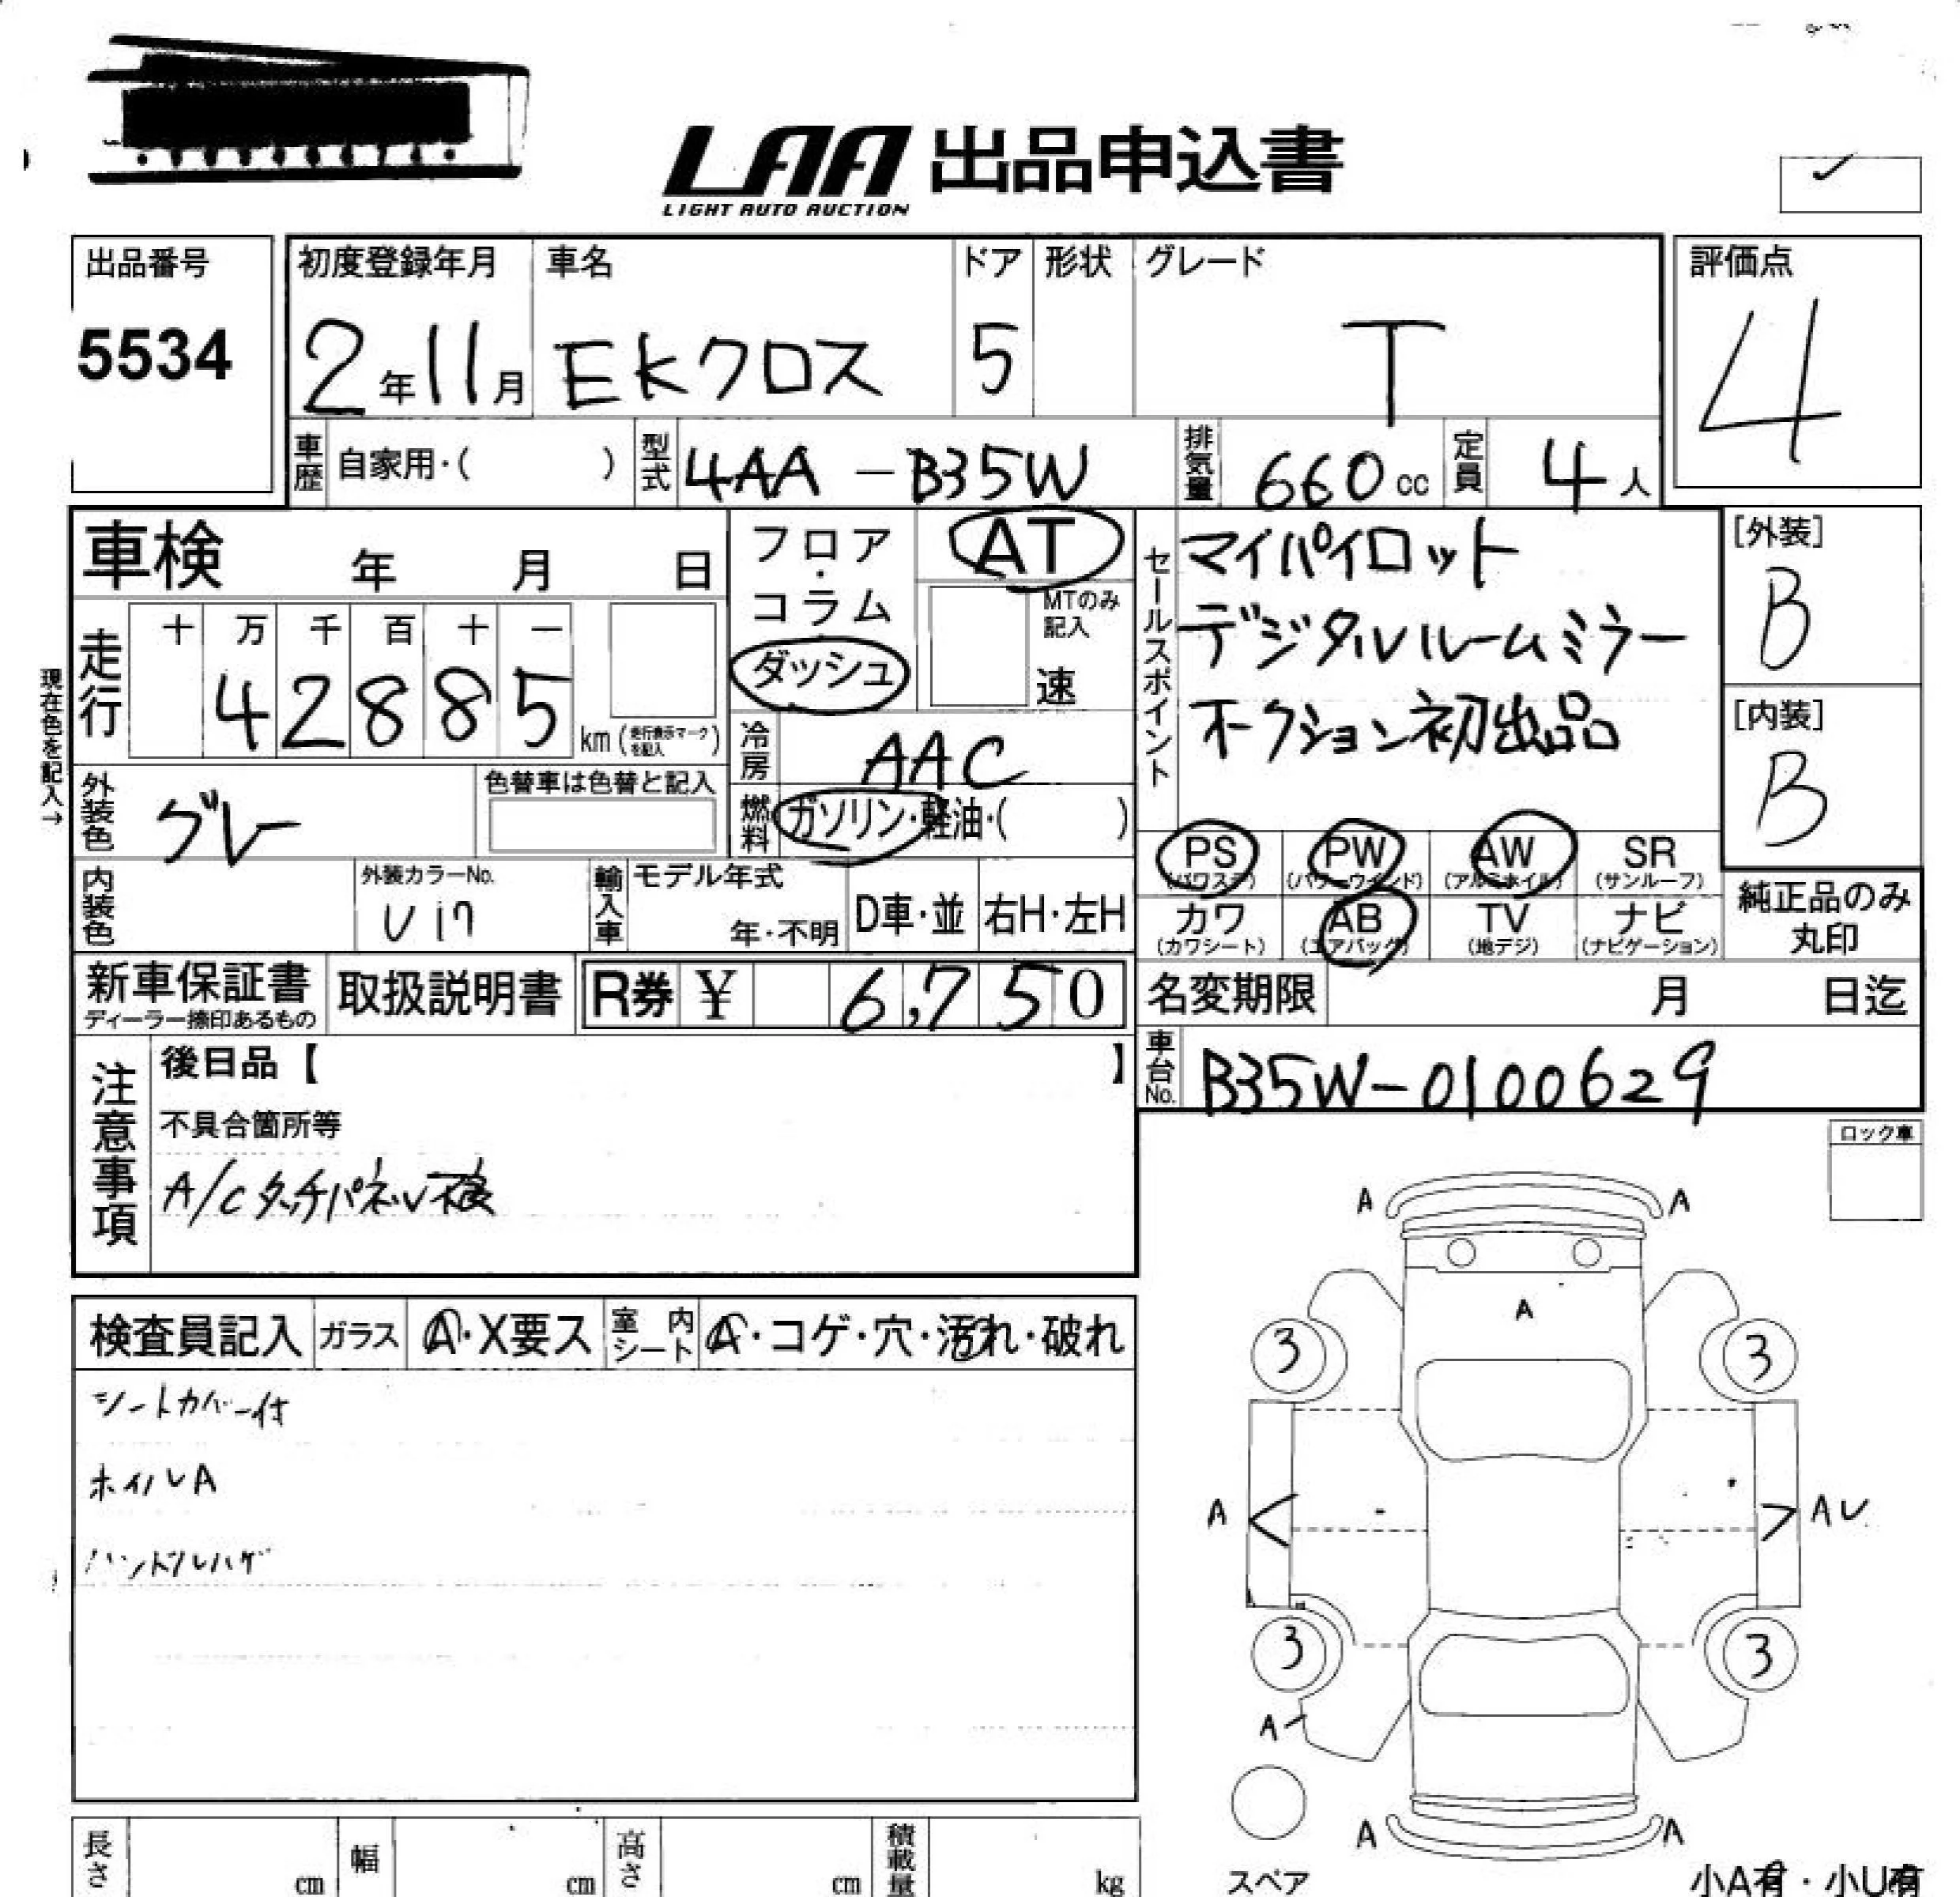 LAA 出品申込書
LIGHT AUTO AUCTION
出品番号
5534
初度登録年月
2年11月
車名
EKクロス
ドア
5
形状
グレード
T
評価点
4
車歴 自家用・( )
型式 4AA-B35W
排気量 660cc
定員 4人
車検 年 月 日
フロア・コラム
ダッシュ
AT
MTのみ記入
速
セールスポイント
マイパイロット
デジタルルームミラー
オークション初出品
[外装]
B
[内装]
B
現在色を記入→
走行
十 万 千 百 十 一
4 2 8 8 5 km (走行表示マークを記入)
冷房 AAC
燃料 ガソリン・軽油・( )
外装色 グレー
色替車は色替と記入
内装色
外装カラーNo.
U17
輸入車
モデル年式
年・不明
D車・並
右H・左H
PS (パワステ)
PW (パワーウインド)
AW (アルミホイル)
SR (サンルーフ)
カワ (カワシート)
AB (エアバッグ)
TV (地デジ)
ナビ (ナビゲーション)
純正品のみ丸印
新車保証書
ディーラー捺印あるもの
取扱説明書
R券 ¥ 6,750
名変期限 月 日迄
車台No. B35W-0100629
注意事項
後日品【 】
不具合箇所等
A/Cタッチパネル
ロック車
検査員記入
ガラス A・X要ス
室内シート A・コゲ・穴・汚れ・破れ
シートカバー付
ホイルA
ハンドルハゲ
A A
A
3 3
A AU
3 3
A
A A
スペア
小A有・小U有
長さ cm
幅 cm
高さ cm
積載量 kg